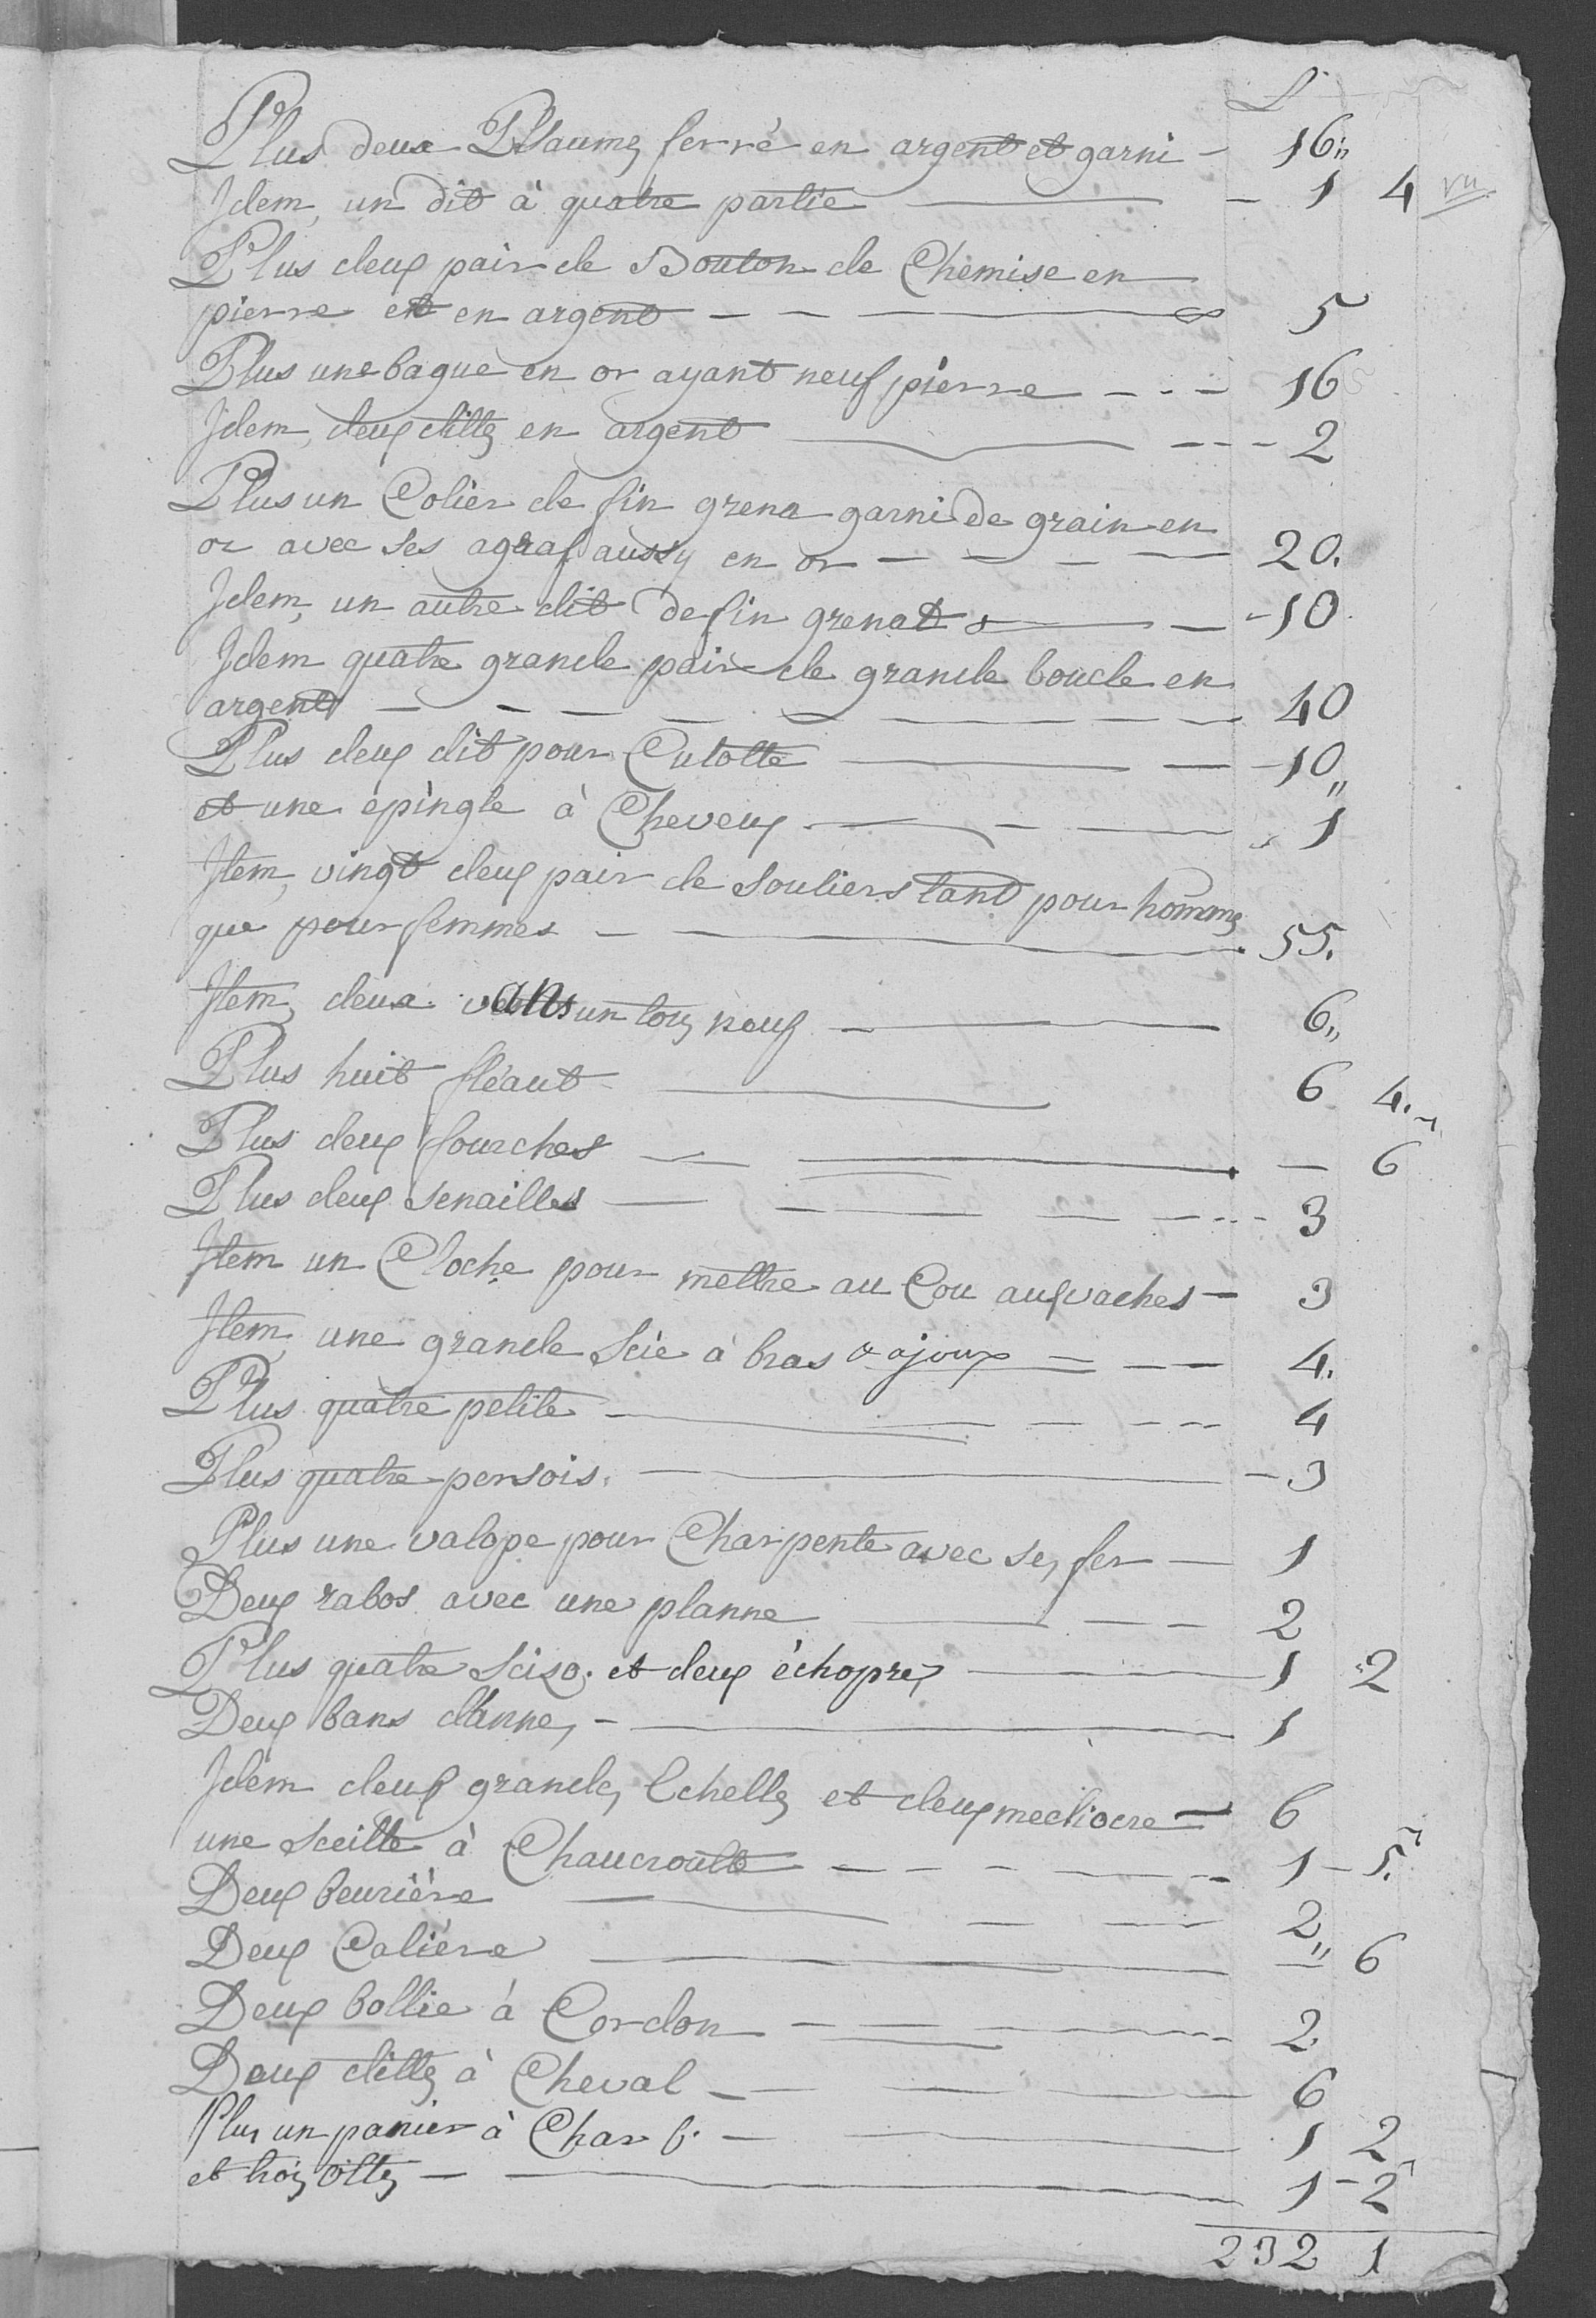 L
Plus deux Psaumes ferré en argent et garni - 16 "
Idem, un dit à quatre partie - 1 4 vu
Plus deux pair de Bouton de Chemise en
pierre et en argent - - - 5
Plus une bague en or ayant neuf pierre - - - 16
Idem, deux dittes en argent - - - 2
Plus un Colier de fin grena garni de grain en
or avec ses agraf aussy en or - - - 20.
Idem, un autre dit de fin grenat - 10
Idem quatre grande pair de grande boucle en
argent - - - 40
Plus deux dit pour Culotte - 10 "
et une épingle à Cheveux - - 1
Item, vingt deux pair de Souliers tant pour hommes
que pour femmes - 55.
Item, deux vans un tous neuf - 6 "
Plus huit fléaut - 6 4.
Plus deux fourches - - 6
Plus deux senailles - - - 3
Item un Cloche pour mettre au Cou aux vaches - 3
Item, une grande Scie à bras - - 4.
Plus quatre petite - - - 4
Plus quatre persois. - 3
Plus une valope pour Charpente avec ses fer - 1
Deux rabos avec une planne - - 2
Plus quatre Sciso. et deux échopres - 1 2
Deux bans d'anne, - 1
Idem deux grandes Echelles et deux mediocre - 6
une Sceille à Chaucroutte - - - 1 - 5.
Deux beurière - - 2 "
Deux Caliere - 6
Deux bollie à Cordon - - - 2
Deux dittes à Cheval - - 6
Plus un panier à Char b. - 1 2
et trois dittes - 1 - 2
232 1